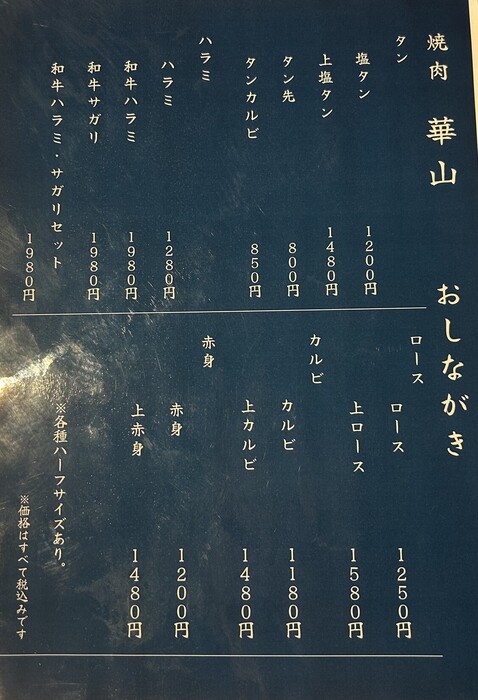 焼肉 華山 おしながき
タン
塩タン 1200円
上塩タン 1480円
タン先 800円
タンカルビ 850円
ハラミ
ハラミ 1280円
和牛ハラミ 1980円
和牛サガリ 1980円
和牛ハラミ・サガリセット 1980円
ロース
ロース 1250円
上ロース 1580円
カルビ
カルビ 1180円
上カルビ 1480円
赤身
赤身 1200円
上赤身 1480円
※各種ハーフサイズあり。
※価格はすべて税込みです